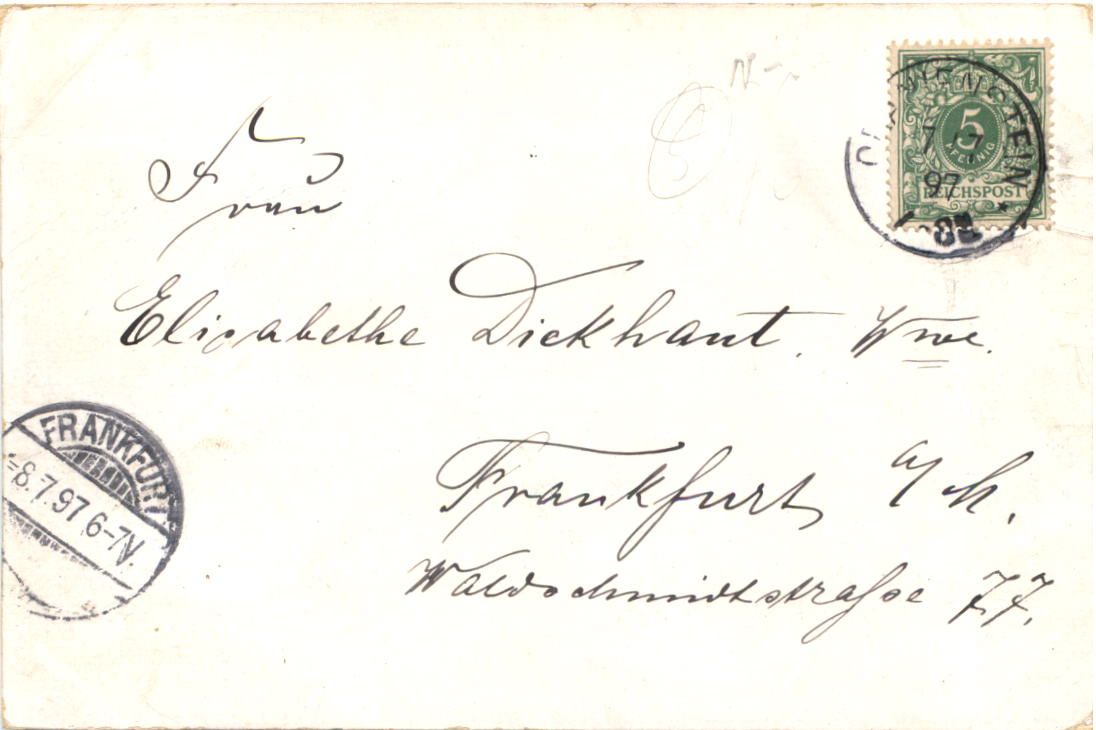 Frau
Elisabethe Dickhaut. Wwe.
Frankfurt a/M.
Waldschmidtstraße 77.
5
PFENNIG
REICHSPOST
7 7
97
FRANKFURT
8.7.97.6-7V.